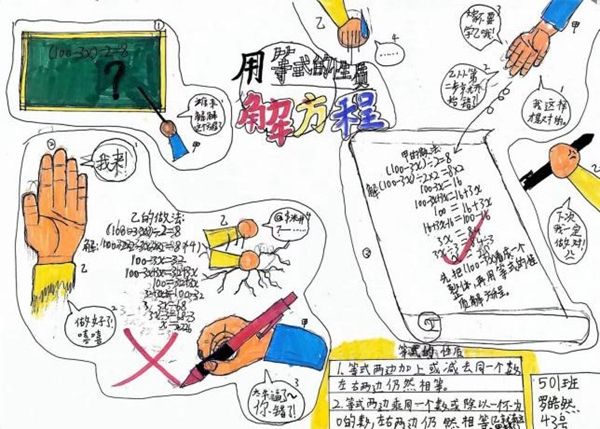 用等式的性质
解方程
①
(100-3x)÷2=8
?
谁来
解解
这个方程
甲
乙
……
4
嫁不要
学乙呢!
甲
3
乙从第
二步就开
始错了!
2
我这样
才对的。
1
下次
我一定
做对!
乙
②
我来!
1
乙
做好了
嘻嘻
2
乙的做法:
(100-3x)÷2=8
解:
100-3x=32
100-3x+3x=32+3x
100=32+3x
乙
甲
太容易了~
你错了!
3
③
甲的做法
(100-3x)÷2=8
解(100-3x)÷2×2=8×2
100-3x=16
100-3x+3x=16+3x
100=16+3x
16+3x-16=100-16
3x=84
3x÷3=84÷3
先把100-3x看成一个
整体,再用等式的性
质解方程。
等式的性质
1.等式两边加上或减去同一个数,
左右两边仍然相等。
2.等式两边乘同一个数或除以一个不为
0的数,左右两边仍然相等
501班
罗皓然
43号